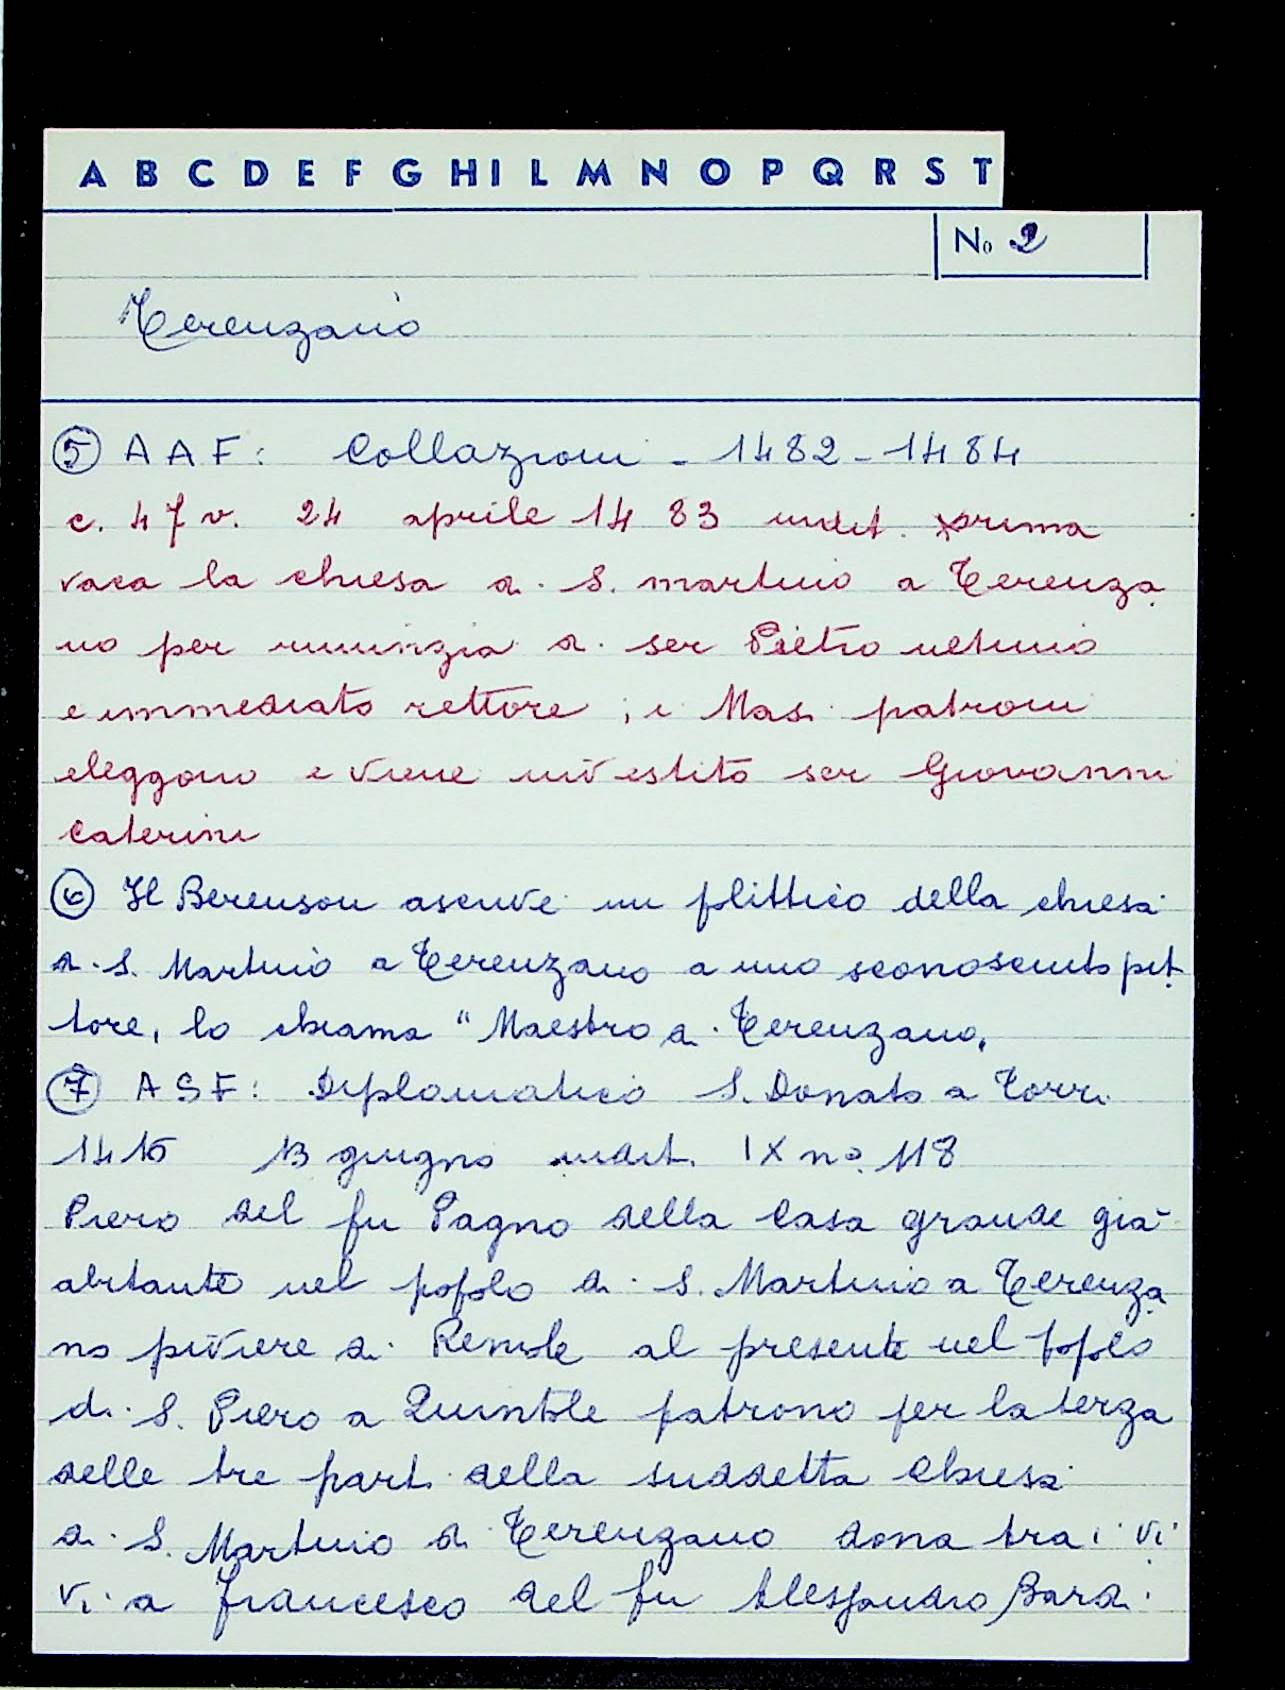 A B C D E F G H I L M N O P Q R S T
No 2
Terenzano
5 AAF: Collazioni - 1482-1484
c. 47 v. 24 aprile 1483 indit. prima
vaca la chiesa di S. martino a Terenza
no per rinunzia di ser Pietro ultimo
e immediato rettore, i Masi patroni
eleggono e viene investito ser Giovanni
Caterini
6 Il Berenson ascrive un polittico della chiesa
di S. Martino a Terenzano a uno sconosciuto pit
tore, lo chiama "Maestro di Terenzano,
7 ASF: Diplomatico S. Donato a Torri
1416 13 giugno indit. IX no. 118
Piero del fu Pagno della Casa grande già
abitante nel popolo di S. Martino a Terenza
no piviere di Remole al presente nel popolo
di S. Piero a Quintole patrono per la terza
delle tre parti della suddetta chiesa
di S. Martino di Terenzano dona tra i vi
vi a Francesco del fu Alessandro Bardi